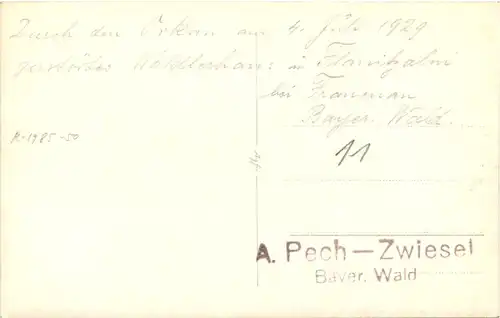 Durch den Orkan am 4. Juli 1929
zerstörtes Waldlerhaus in Flanitzalm
bei Frauenau
Bayer. Wald.
R-1985-50
11
A. Pech — Zwiesel
Bayer. Wald